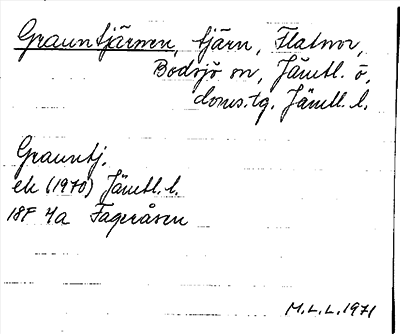 Grauntjärnen, tjärn, Flatnor,
Bodsjö sn, Jämtl. ö.
doms.tg. Jämtl. l.
Grauntj.
ek (1970) Jämtl. l.
18F 4a Fageråsen
M.L.L. 1971